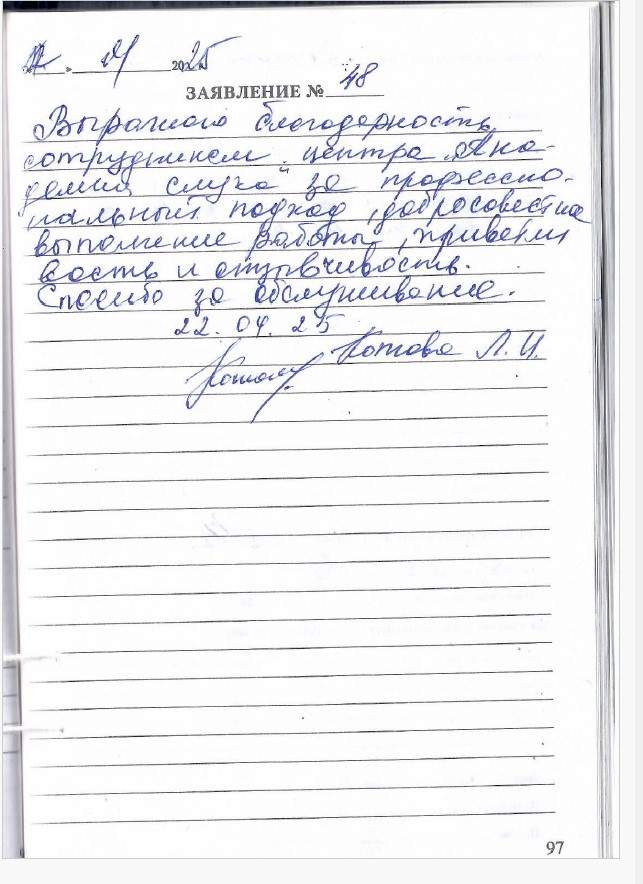 22 04 2025
ЗАЯВЛЕНИЕ № 48
Выражаю благодарность
сотрудникам центра „Ака-
демия слуха" за профессио-
нальный подход, добросовестное
выполнение работы, приветли
вость и отзывчивость.
Спасибо за обслуживание.
22.04.25
Котова Л.И.
97